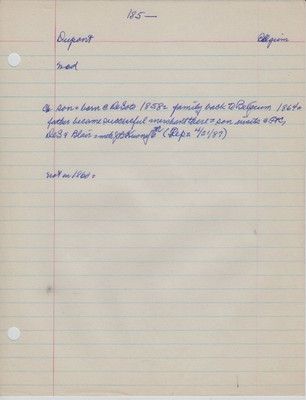 185—
Dupont Belgium
med
son = born @ DeSoto 1858 = family back to Belgium 1864 =
father became successful merchant there = son visits
DeS & Blair = (Rep = 4/21/87)
not in 1860 =